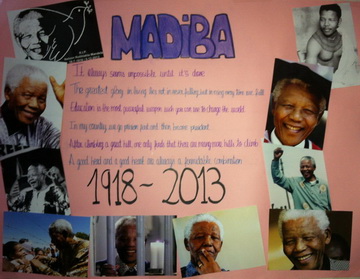 MADiBA
It always seems impossible until it's done
The greatest glory in living lies not in never falling but in rising every time we fall.
Education is the most powerful weapon which you can use to change the world.
In my country we go prison first and then become president.
After climbing a great hill, one only finds that there are many more hills to climb
A good head and a good heart are always a formidable combination
1918 - 2013